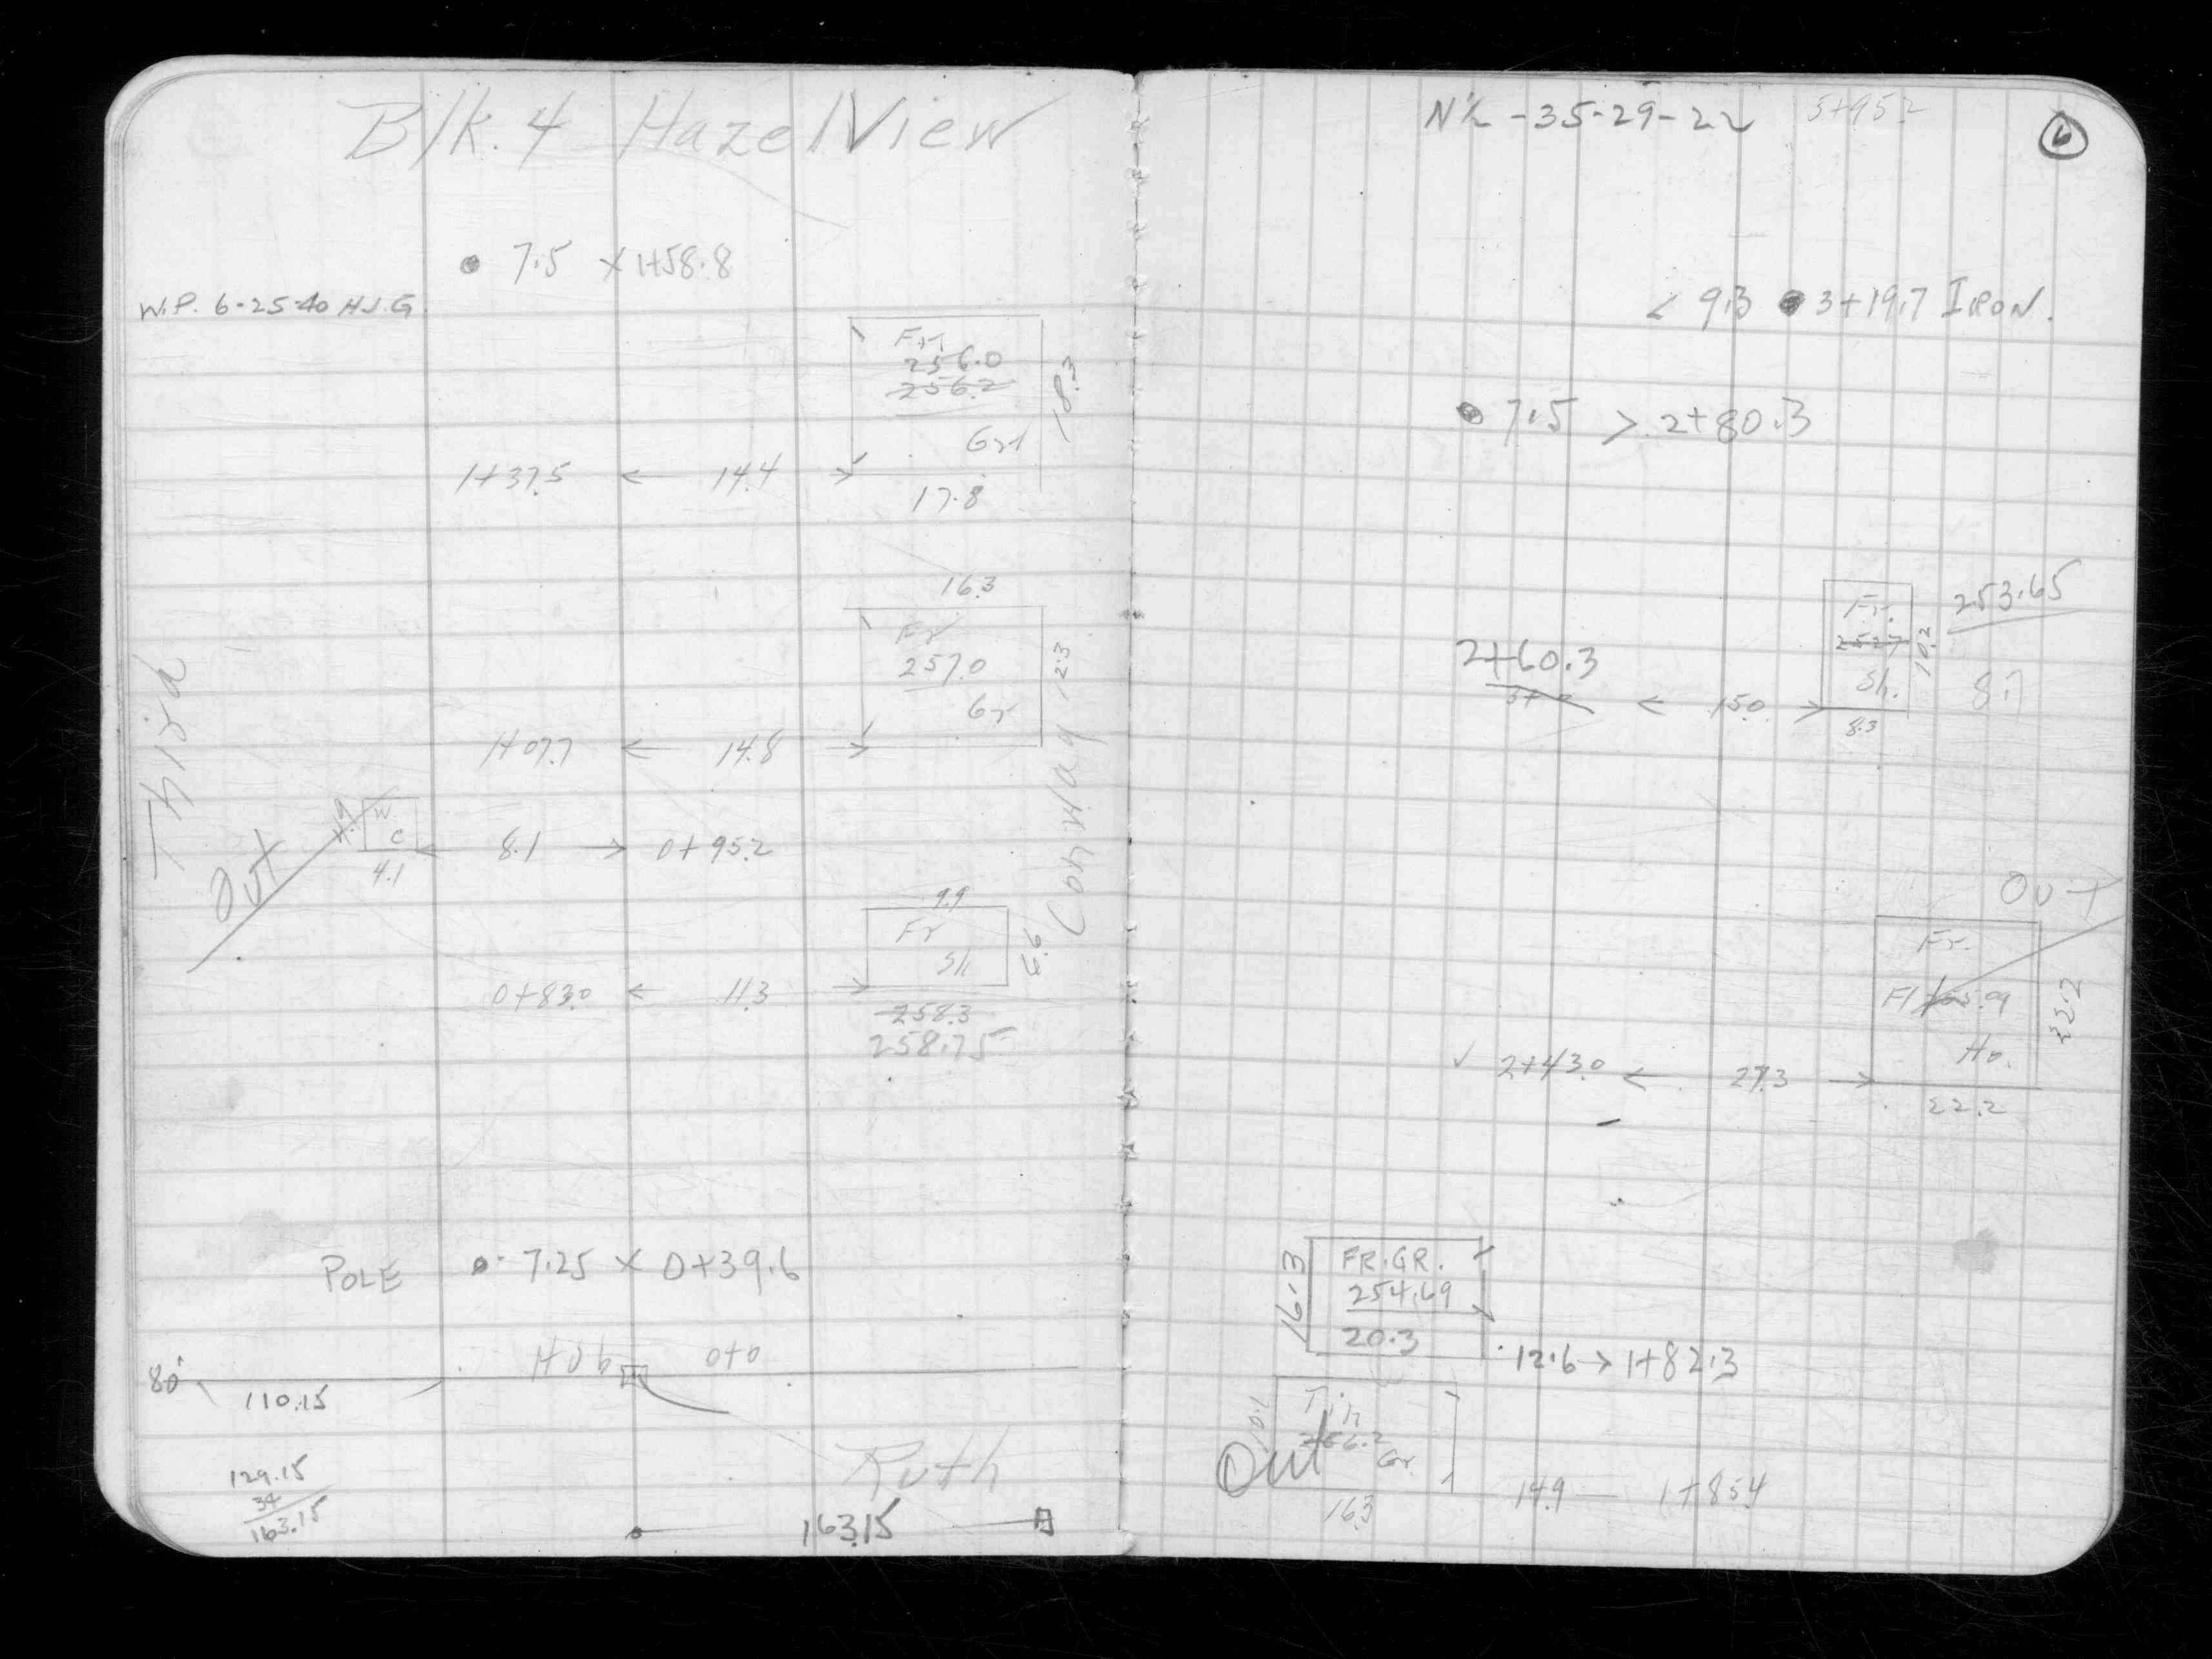 Blk. 4 HazelView
7.5 x 1+58.8
W.P. 6-25-40 H.J.G.
Fr.
256.0
256.2
Gr
18.3
1+37.5 ← 14.4 →
17.8
16.3
Fr
257.0
Gr
12.3
1+07.7 ← 14.8 →
Third
Conway
Out
W
C
4.1
← 8.1 → 0+95.2
9.9
Fr
Sh.
6.6
0+83.0 ← 11.3 →
258.3
258.75
POLE 7.25 x 0+39.6
Hub 0+0
80'
110.15
Ruth
129.15
34
163.15
163.15
N½ -35-29-22 5+95.2
6
< 9.3 3+19.7 IRON.
7.5 > 2+80.3
Fr.
252.7
Sh.
10.2
253.65
8.7
2+60.3
← 15.0 →
8.3
Out
Fr.
Fl
Ho.
22.2
✓ 2+43.0 ← 27.3 →
22.2
16.3
FR.GR.
254.69
20.3
12.6 → 1+82.3
Tin
256.2
Gr
Out
16.3
14.9 — 1+85.4